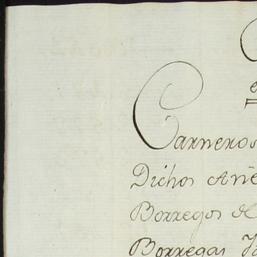 Carneros
Dichos Añe
Borregos de
Borregas